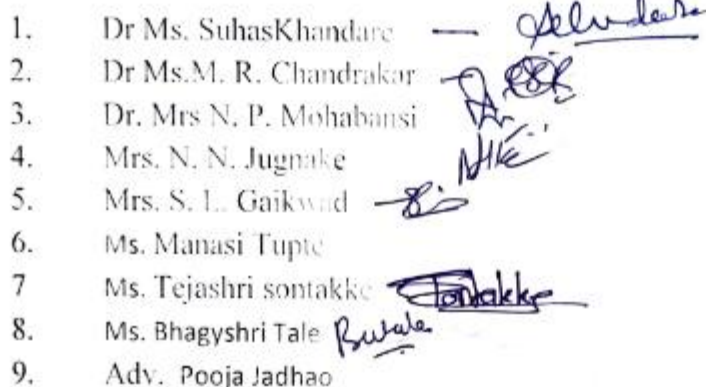 1. Dr Ms. SuhasKhandare —
2. Dr Ms.M. R. Chandrakar –
3. Dr. Mrs N. P. Mohabansi
4. Mrs. N. N. Jugnake
5. Mrs. S. L. Gaikwad –
6. Ms. Manasi Tupte
7 Ms. Tejashri sontakke Sontakke
8. Ms. Bhagyshri Tale
9. Adv. Pooja Jadhao